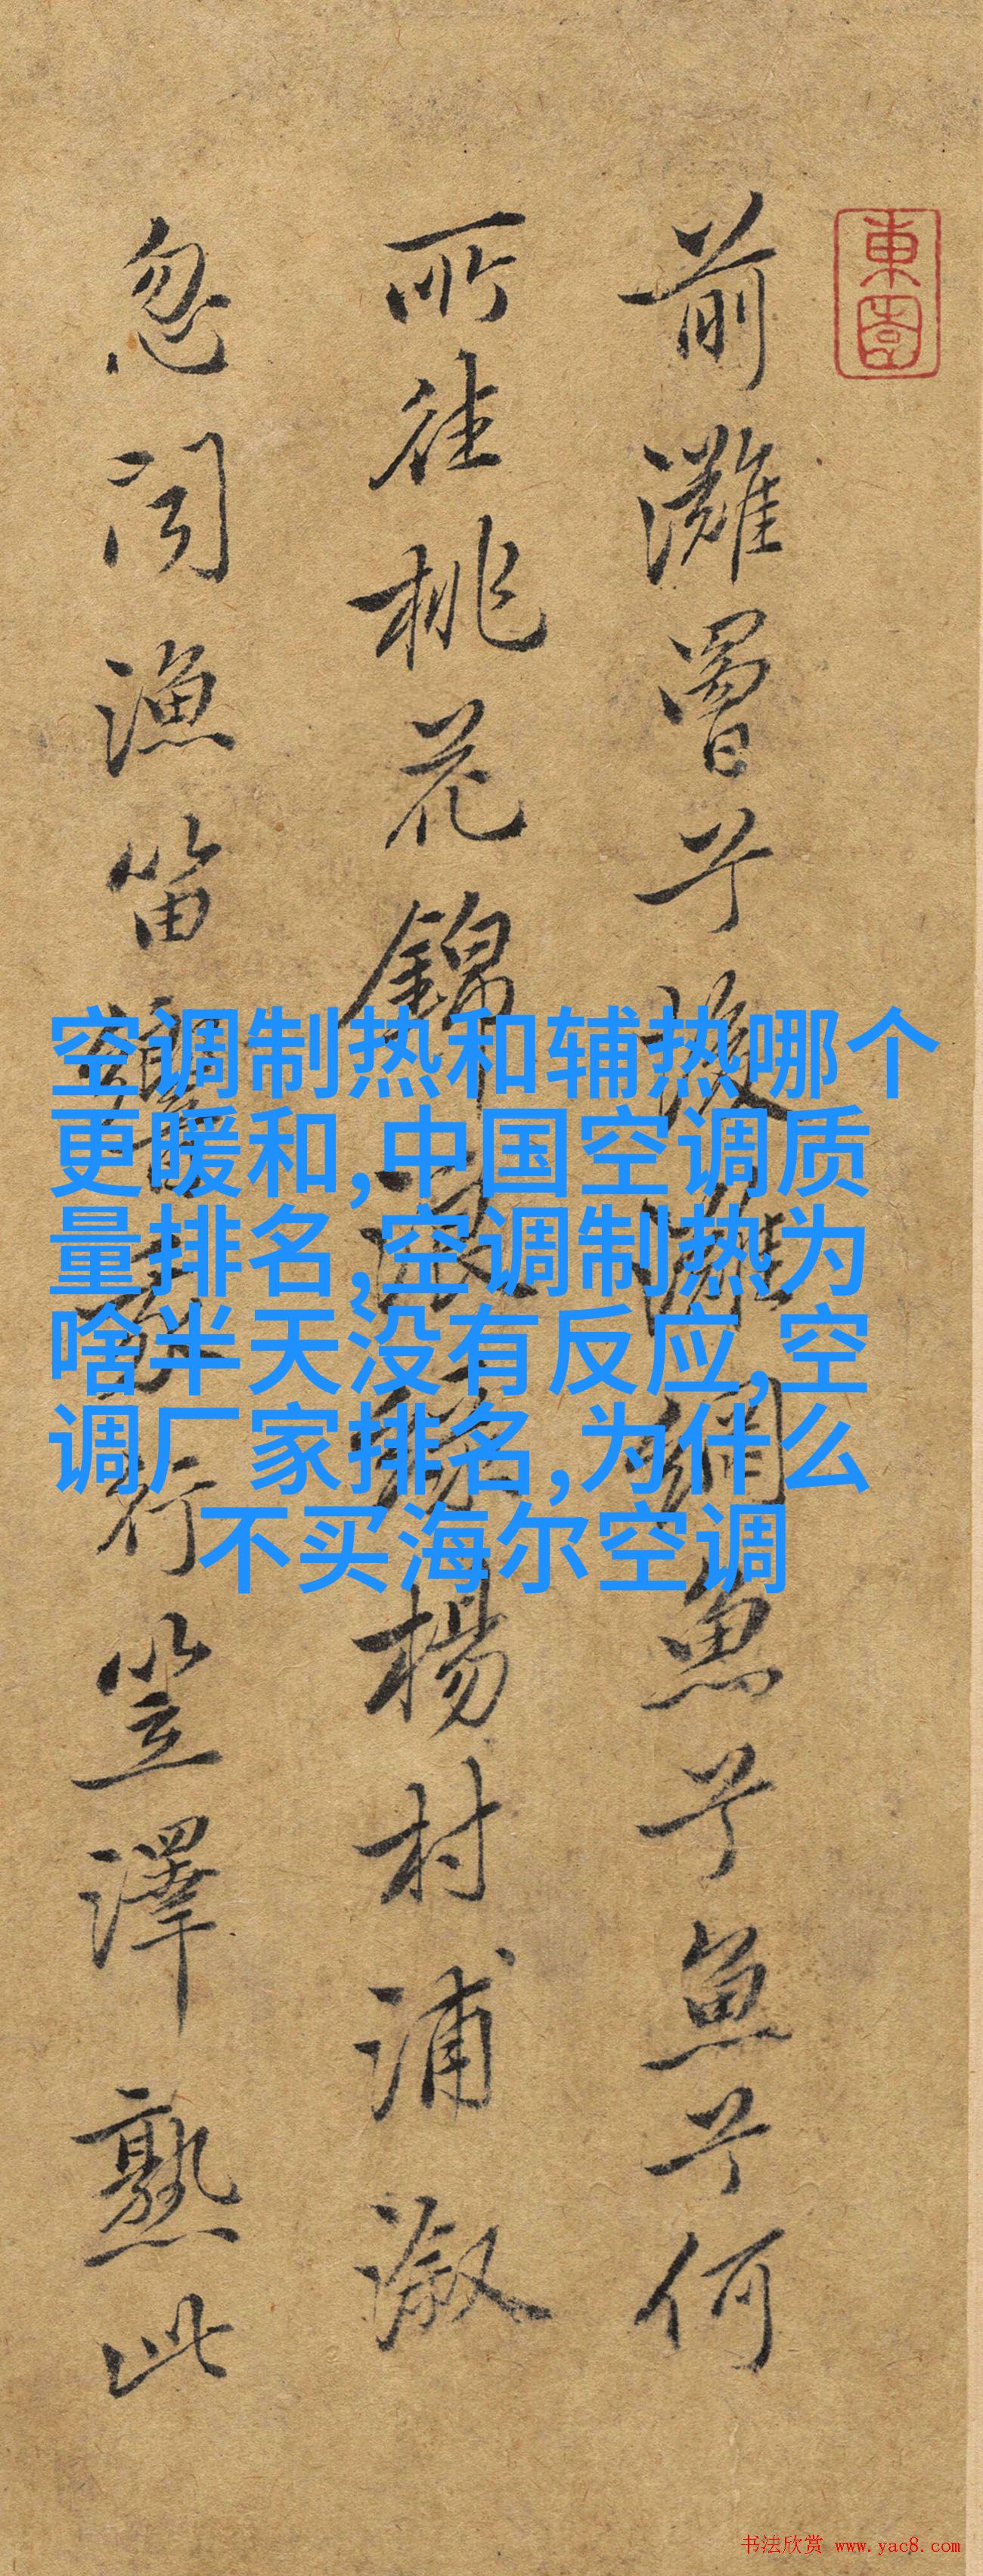 東園
前灘罾子後灘網魚子魚子何
所往桃花錦浪綠楊村浦溆
忽聞漁笛響我行笠澤熟此
空调制热和辅热哪个
更暖和,中国空调质
量排名,空调制热为
啥半天没有反应,空
调厂家排名,为什么
不买海尔空调
书法欣赏 www.yac8.com